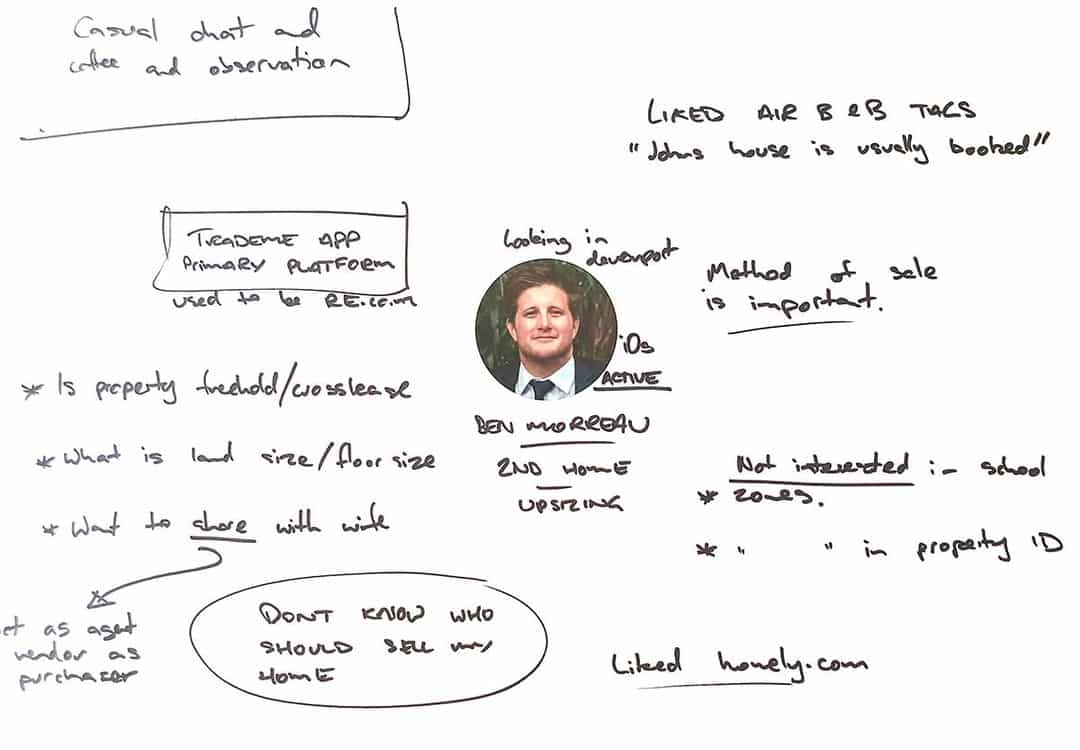 Casual chat and
coffee and observation
LIKED AIR B & B TAGS
"Johns house is usually booked"
TRADEME APP
PRIMARY PLATFORM
used to be RE.co.nz
Looking in
devonport
iOS
ACTIVE
BEN MORREAU
2ND HOME
UPSIZING
Method of sale
is important.
* Is property freehold/crosslease
* What is land size/floor size
* Want to share with wife
act as agent
vendor as
purchaser
DONT KNOW WHO
SHOULD SELL MY
HOME
Not interested in school
* zones.
* " " in property ID
Liked homely.com